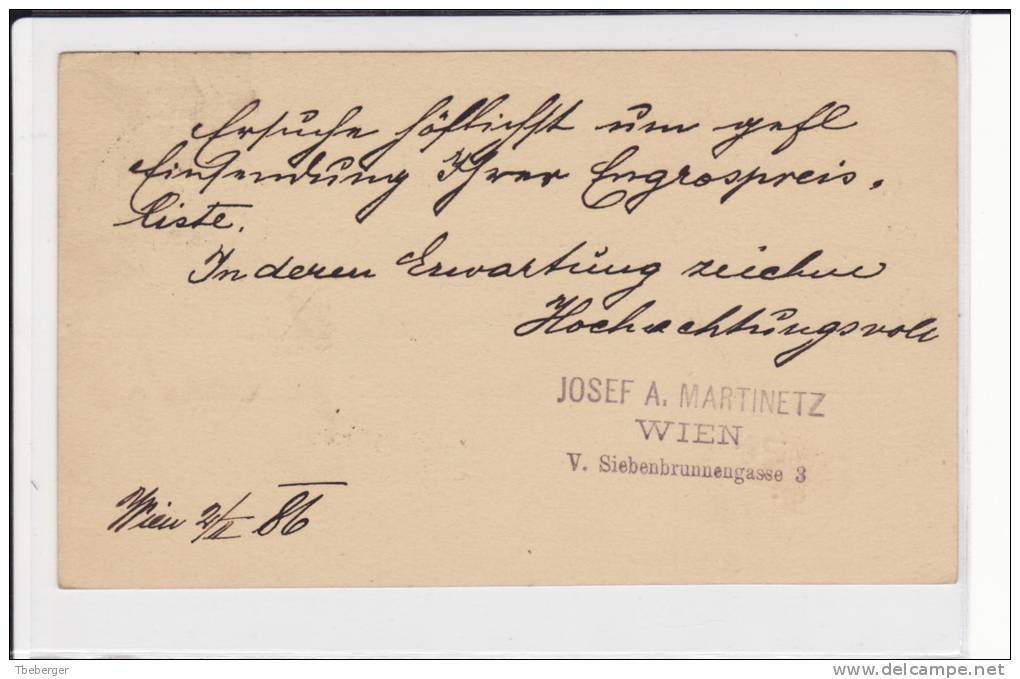 Ersuche höflichst um gefl
Einsendung Ihrer Engrospreis-
liste.
In deren Erwartung zeichne
Hochachtungsvoll
JOSEF A. MARTINETZ
WIEN
V. Siebenbrunnengasse 3
Wien 2/II 86
Tbeberger
www.delcampe.net